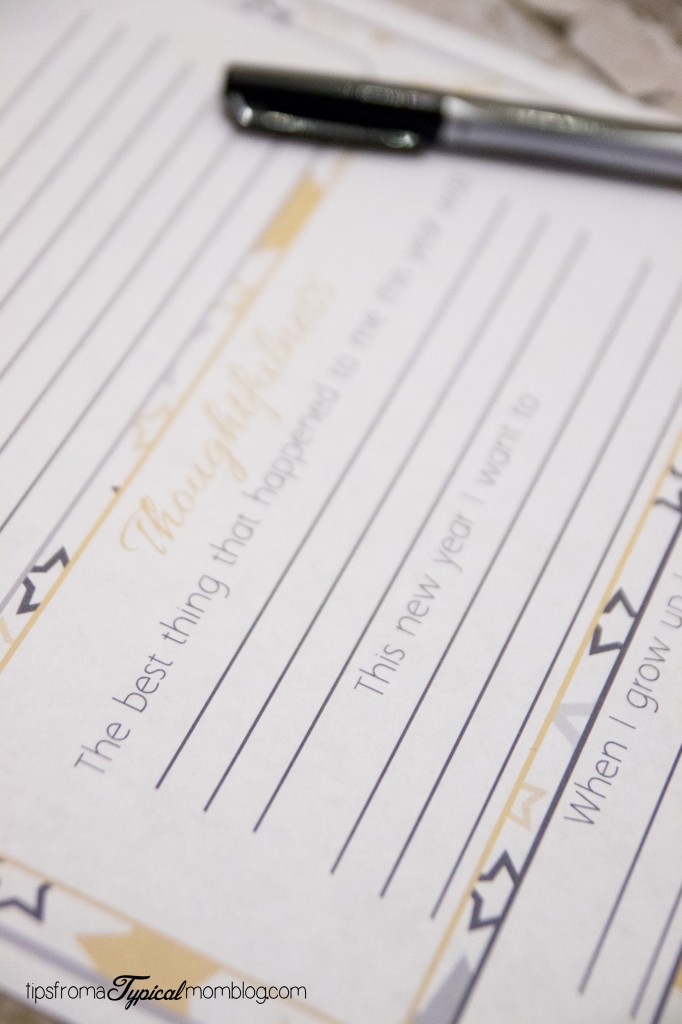 Thoughtfulness
The best thing that happened to me this year was
This new year I want to
When I grow up I
tipsfromaTypicalmomblog.com